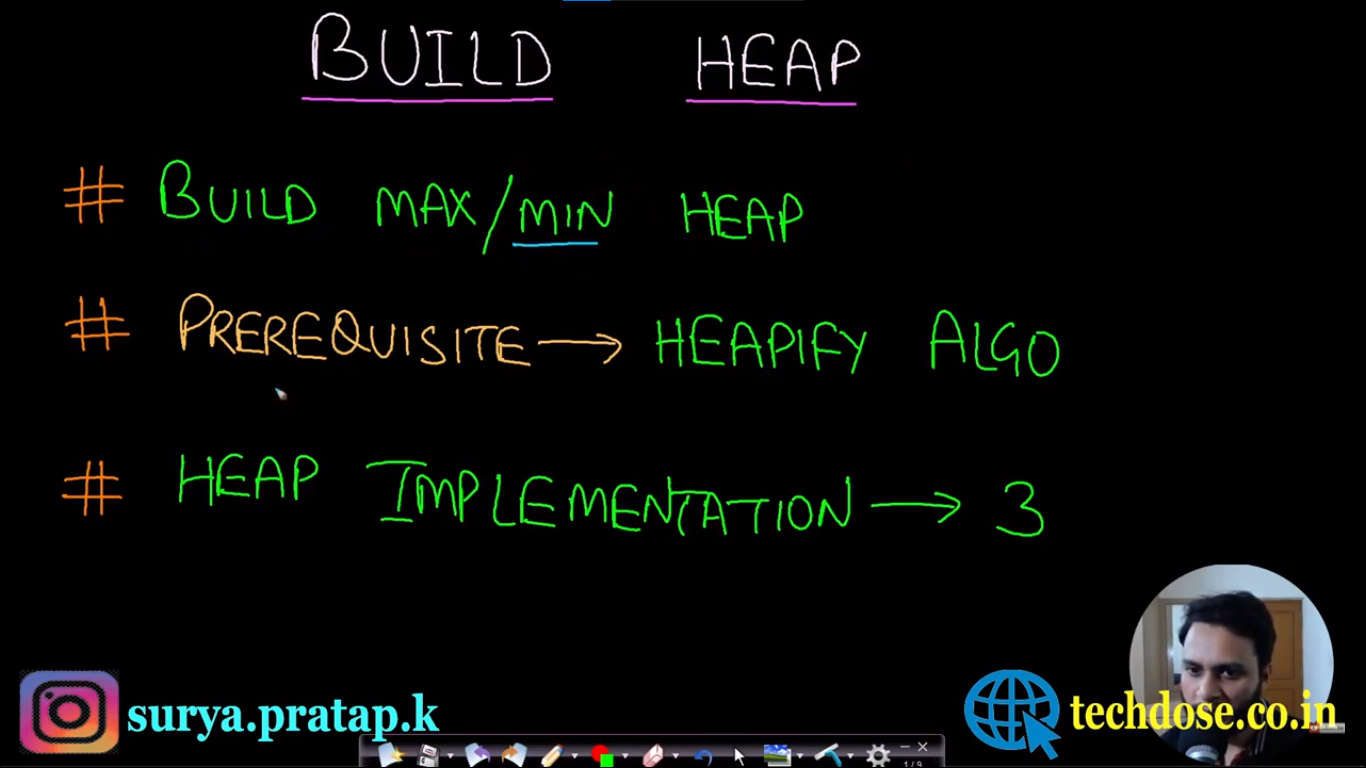 BUILD HEAP
# BUILD MAX/MIN HEAP
# PREREQUISITE → HEAPIFY ALGO
# HEAP IMPLEMENTATION → 3
surya.pratap.k
techdose.co.in
1/9